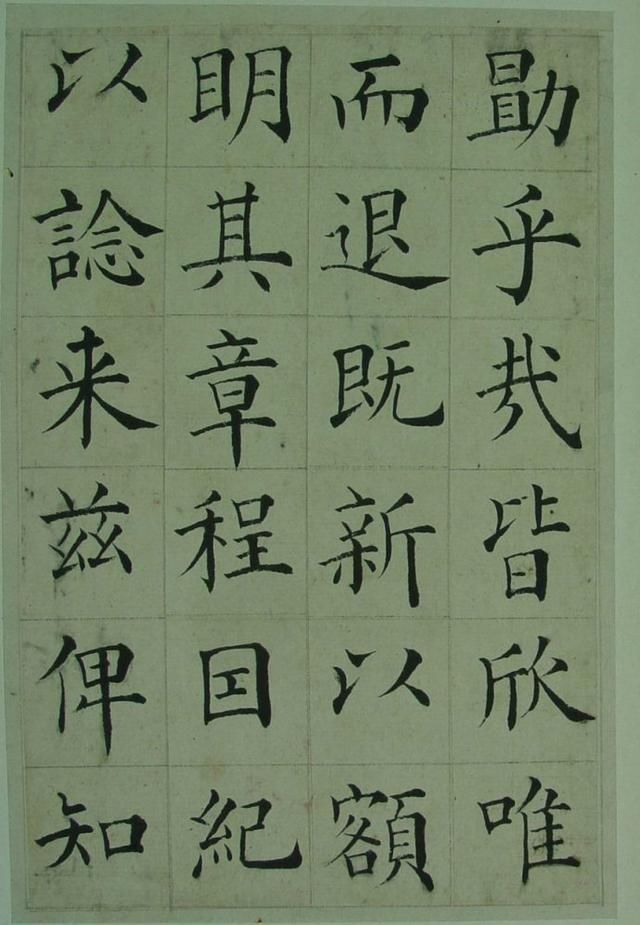 勗乎㢤皆欣唯
而退既新以額
眀其章程囙紀
以諗来兹俾知